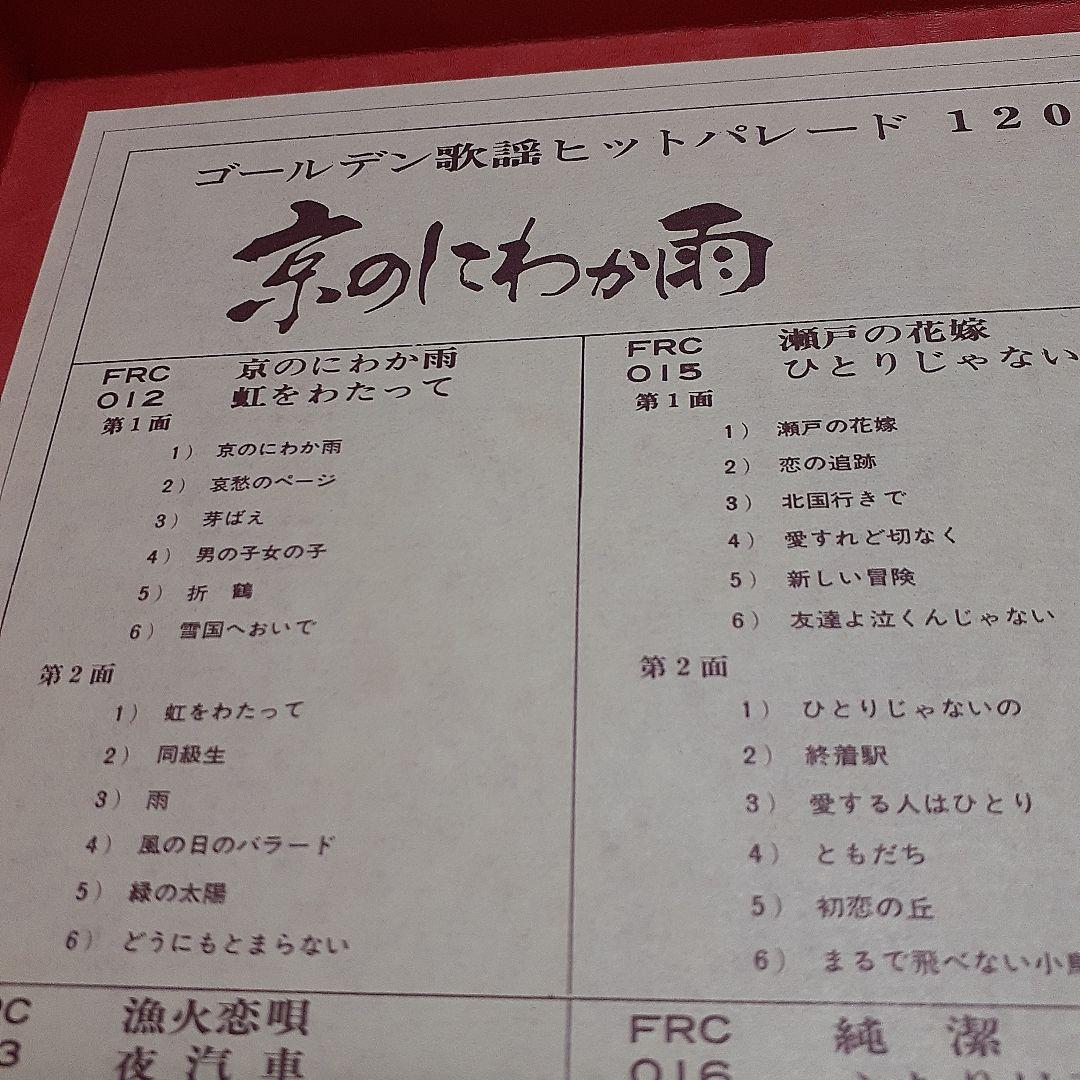 ゴールデン歌謡ヒットパレード 120
京のにわか雨
FRC
012
京のにわか雨
虹をわたって
第1面
1) 京のにわか雨
2) 哀愁のページ
3) 芽ばえ
4) 男の子女の子
5) 折 鶴
6) 雪国へおいで
第2面
1) 虹をわたって
2) 同級生
3) 雨
4) 風の日のバラード
5) 緑の太陽
6) どうにもとまらない
FRC
015
瀬戸の花嫁
ひとりじゃない
第1面
1) 瀬戸の花嫁
2) 恋の追跡
3) 北国行きで
4) 愛すれど切なく
5) 新しい冒険
6) 友達よ泣くんじゃない
第2面
1) ひとりじゃないの
2) 終着駅
3) 愛する人はひとり
4) ともだち
5) 初恋の丘
6) まるで飛べない小鳥
RC
3
漁火恋唄
夜汽車
FRC
016
純 潔